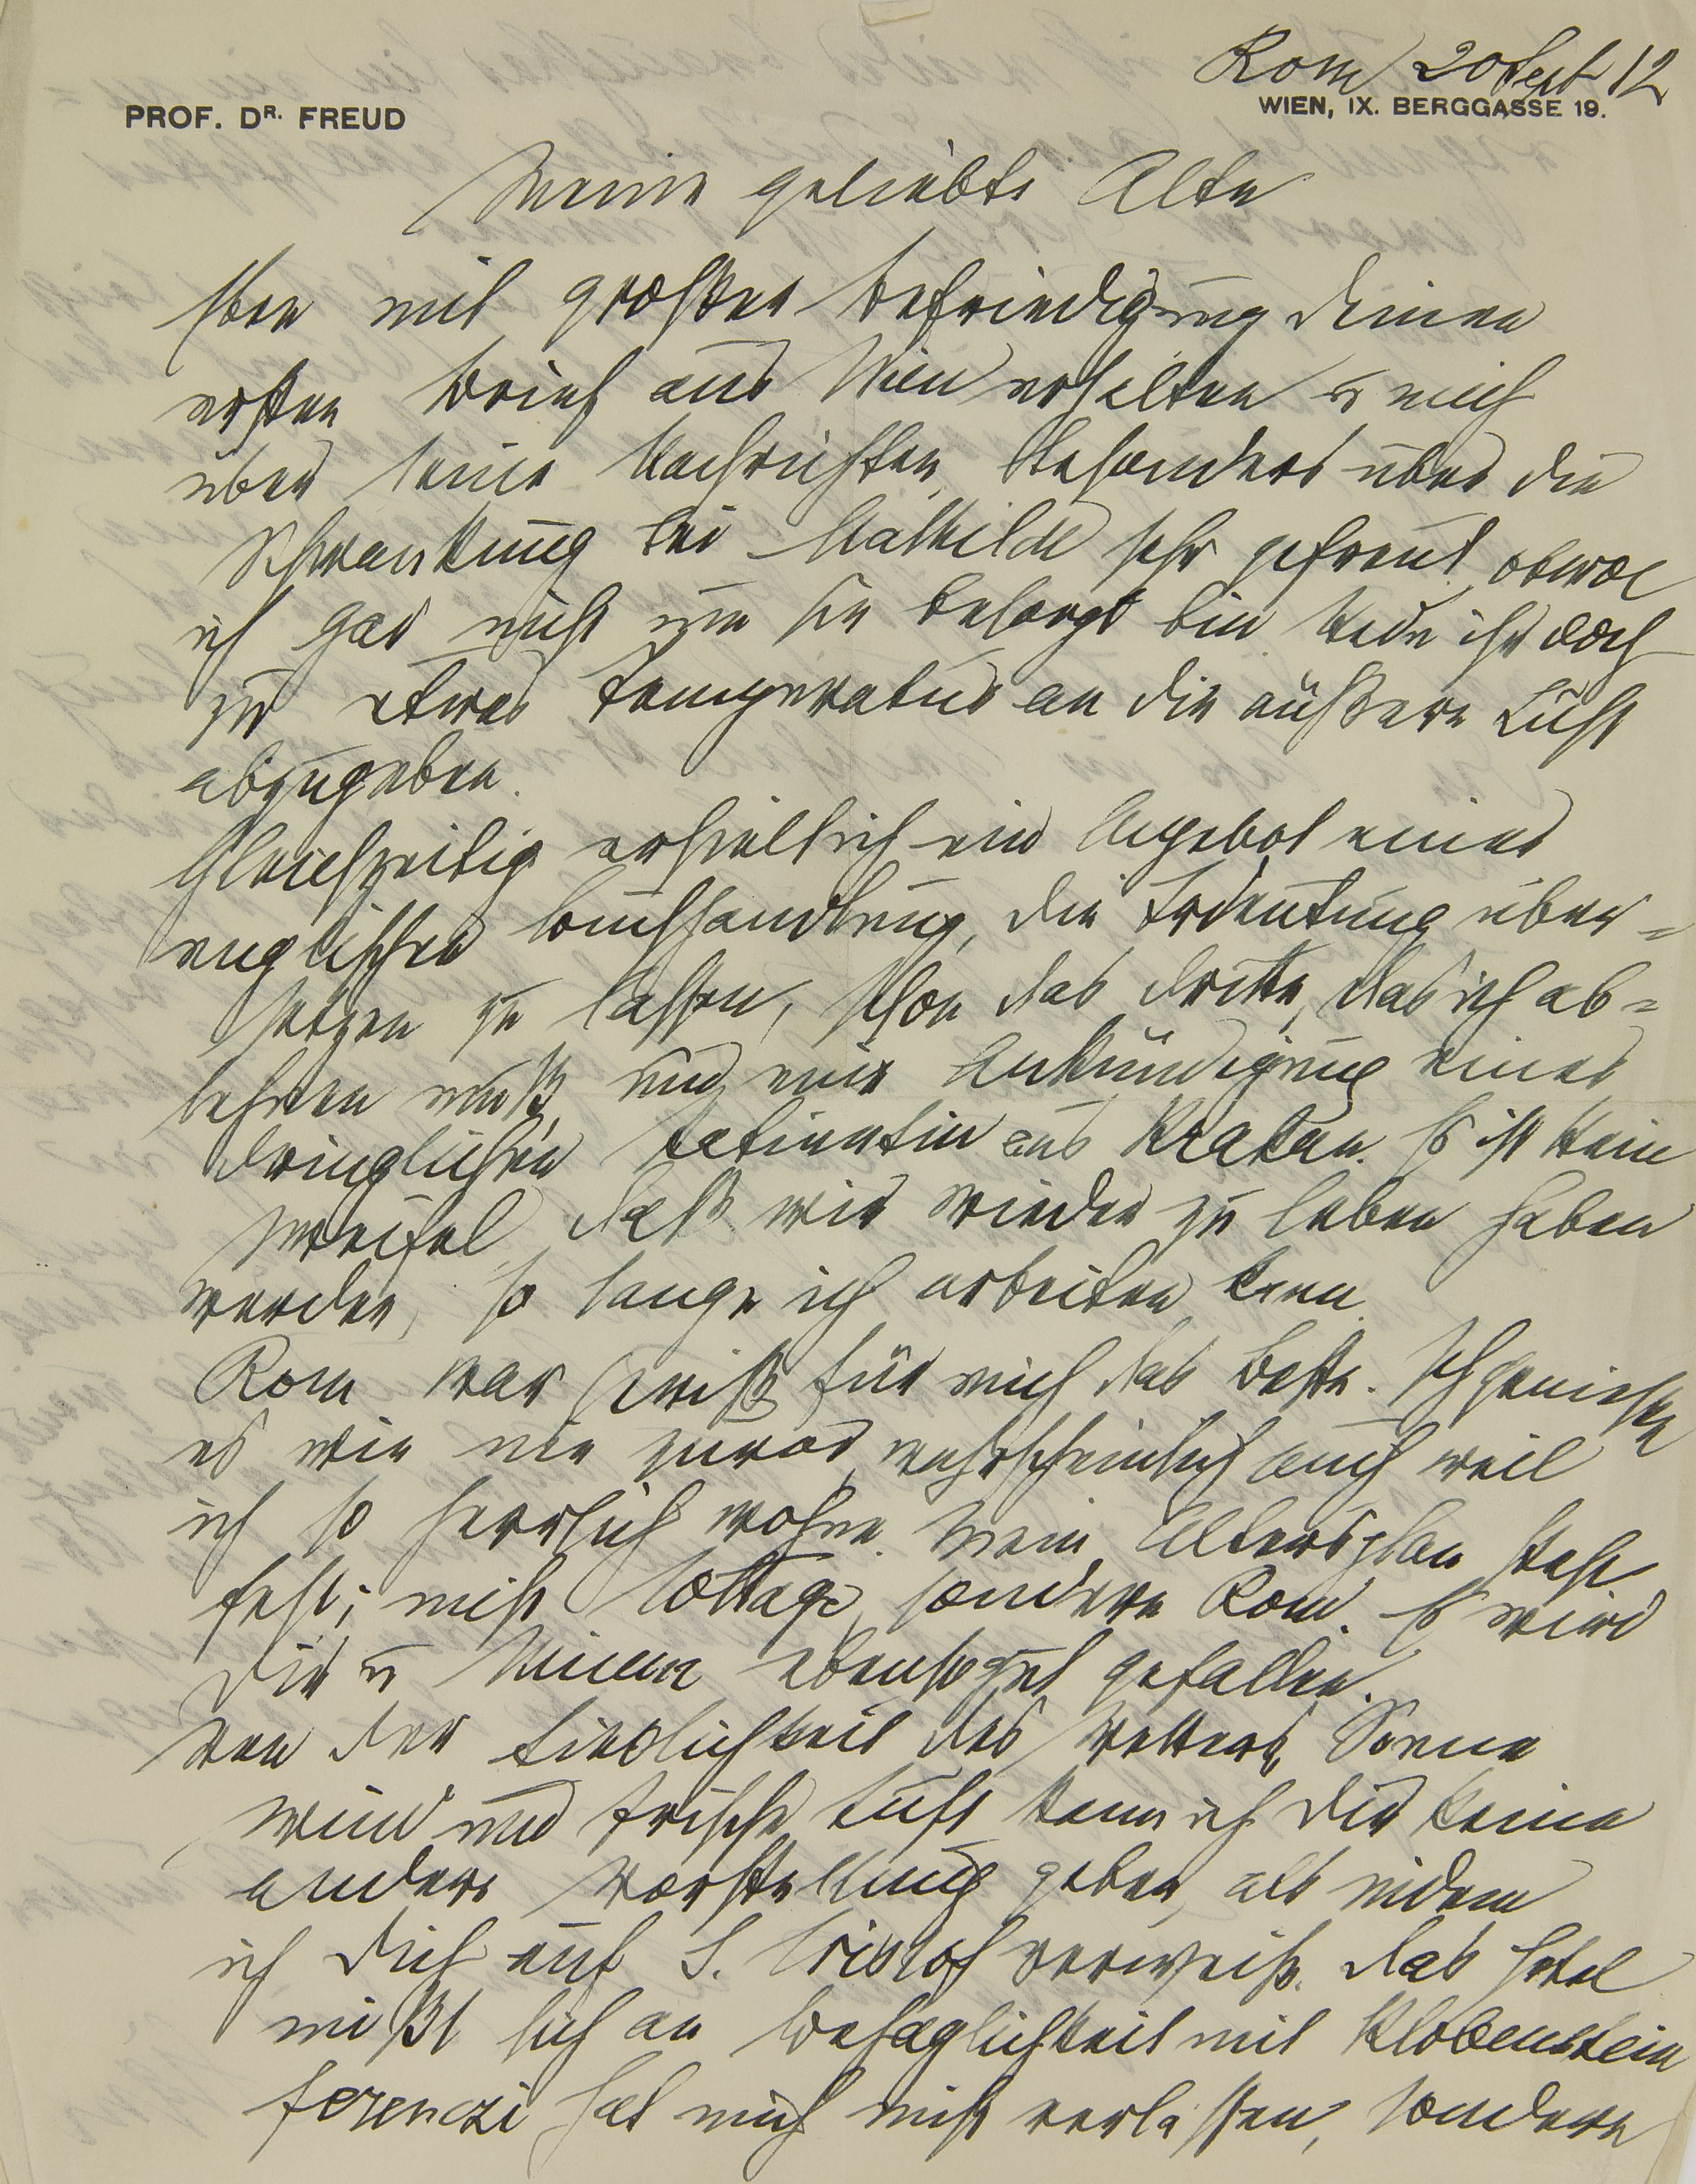 Rom 20 Sept 12
PROF. DR. FREUD
WIEN, IX. BERGGASSE 19.
Meine geliebte Alte
Eben mit großer Befriedigung Deinen
ersten Brief aus Wien erhalten u mich
über seine Nachrichten, besonders über die
Schwankung bei Mathilde sehr gefreut, obwol
ich gar nicht um sie besorgt bin. Rede ihr doch
zu etwas Temperatur an die äußere Luft
abzugeben.
Gleichzeitig erhielt ich ein Angebot einer
englischen Buchhandlung, die Trdeutung über=
setzen zu lassen, schon das dritte, das ich ab=
lehnen muß, und eine Ankündigung einer
dringlichen Patientin aus Krakau. Es ist kein
Zweifel, daß wir wieder zu leben haben
werden, so lange ich arbeiten kann.
Rom war gewiß für mich das Beste. Ich genieße
es wie nie zuvor, wahrscheinlich auch weil
ich so herrlich wohne. Mein Altersplan steht
fest; nicht Cottage, sondern Rom. Es wird
Dir u Minna ebensogut gefallen.
Von der Lieblichkeit des Wetters, Sonne
Wind und frische Luft kann ich Dir keine
andere Vorstellung geben, als indem
ich Dich auf S. Cristof verweise. Das Hotel
mißt sich an Behaglichkeit mit Klobenstein
Ferenczi hat mich nicht verlassen, sondern